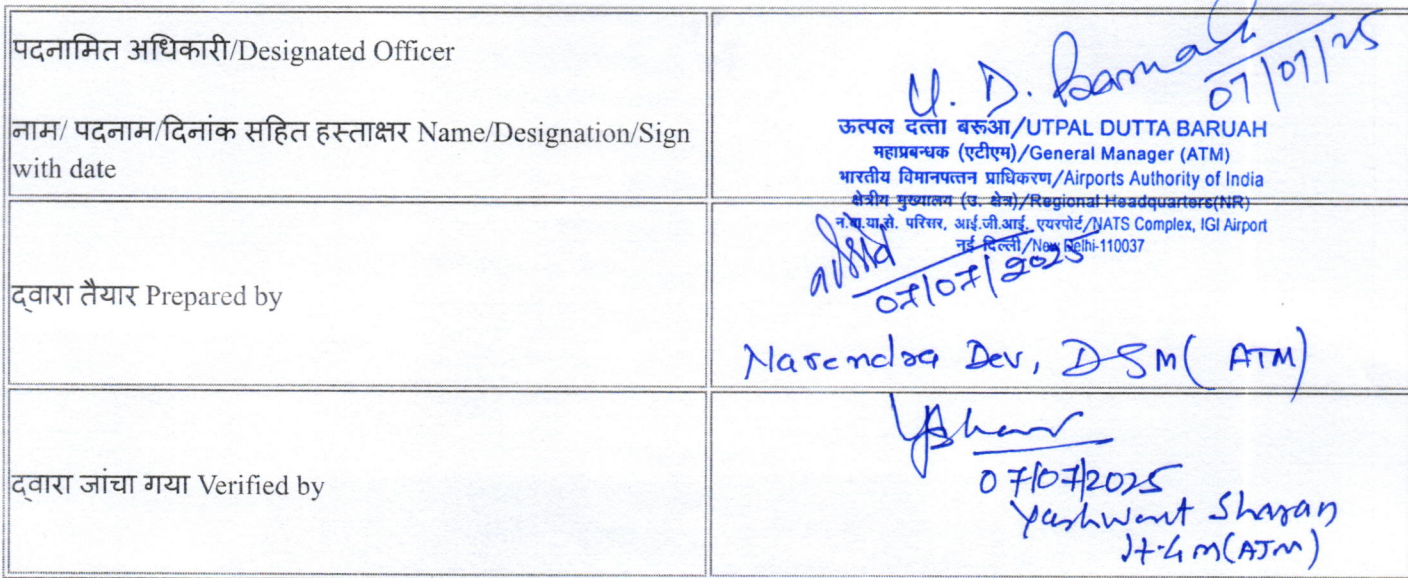 पदनामित अधिकारी/Designated Officer
नाम/ पदनाम/दिनांक सहित हस्ताक्षर Name/Designation/Sign
with date
U. D. Baruah
07/07/25
ऊत्पल दत्ता बरूआ/UTPAL DUTTA BARUAH
महाप्रबन्धक (एटीएम)/General Manager (ATM)
भारतीय विमानपत्तन प्राधिकरण/Airports Authority of India
क्षेत्रीय मुख्यालय (उ. क्षेत्र)/Regional Headquarters(NR)
परिसर, आई.जी.आई. एयरपोर्ट/NATS Complex, IGI Airport
नई दिल्ली/New Delhi-110037
द्वारा तैयार Prepared by
07/07/2025
Narendra Dev, DGM( ATM)
द्वारा जांचा गया Verified by
07/07/2025
Yashwant Sharan
Jt-GM(ATM)